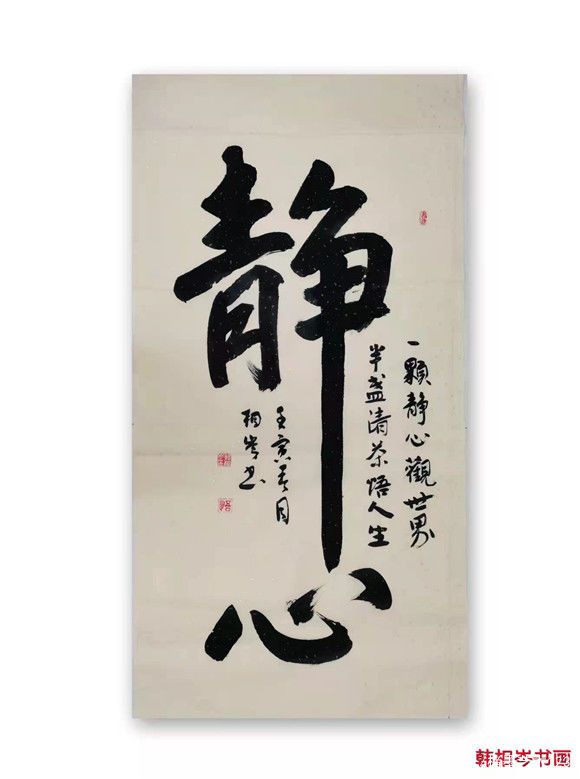 静心
一顆静心觀世界
半盏清茶悟人生
壬寅春月
相岑书
韩相岑书画